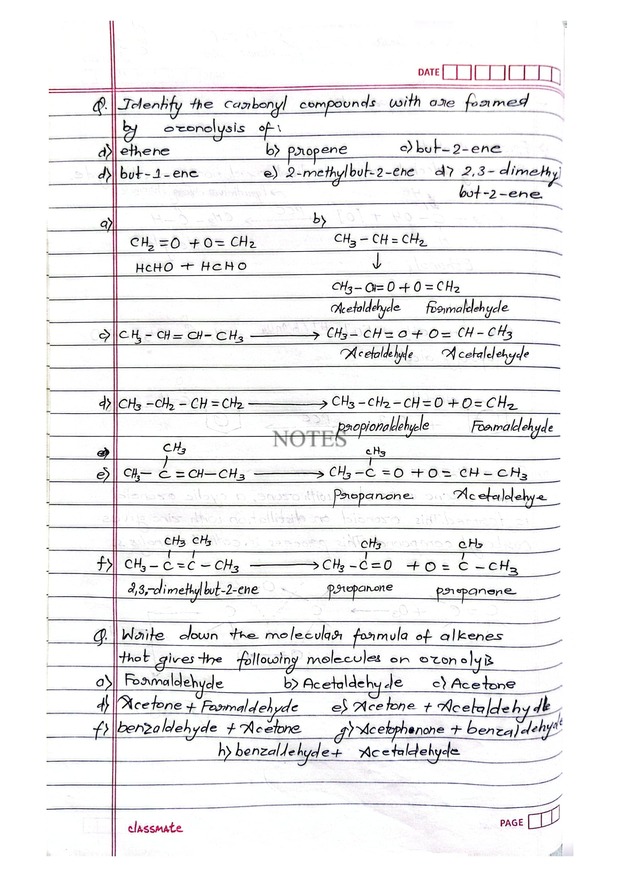 DATE
Q. Identify the carbonyl compounds with are formed
by ozonolysis of:
a) ethene b) propene c) but-2-ene
d) but-1-ene e) 2-methylbut-2-ene d) 2,3-dimethyl
but-2-ene
a) b)
CH2=O + O=CH2 CH3-CH=CH2
HCHO + HCHO ↓
CH3-CH=O + O=CH2
Acetaldehyde Formaldehyde
c) CH3-CH=CH-CH3 → CH3-CH=O + O=CH-CH3
Acetaldehyde Acetaldehyde
d) CH3-CH2-CH=CH2 → CH3-CH2-CH=O + O=CH2
propionaldehyde Formaldehyde
NOTES
CH3 CH3
e) CH3-C=CH-CH3 → CH3-C=O + O=CH-CH3
Propanone Acetaldehye
CH3 CH3 CH3 CH3
f) CH3-C=C-CH3 → CH3-C=O + O=C-CH3
2,3,-dimethylbut-2-ene propanone propanone
Q. Write down the molecular formula of alkenes
that gives the following molecules on ozonolyis
a) Formaldehyde b) Acetaldehyde c) Acetone
d) Acetone + Formaldehyde e) Acetone + Acetaldehyde
f) benzaldehyde + Acetone g) Acetophonone + benzaldehyde
h) benzaldehyde + Acetaldehyde
classmate
PAGE